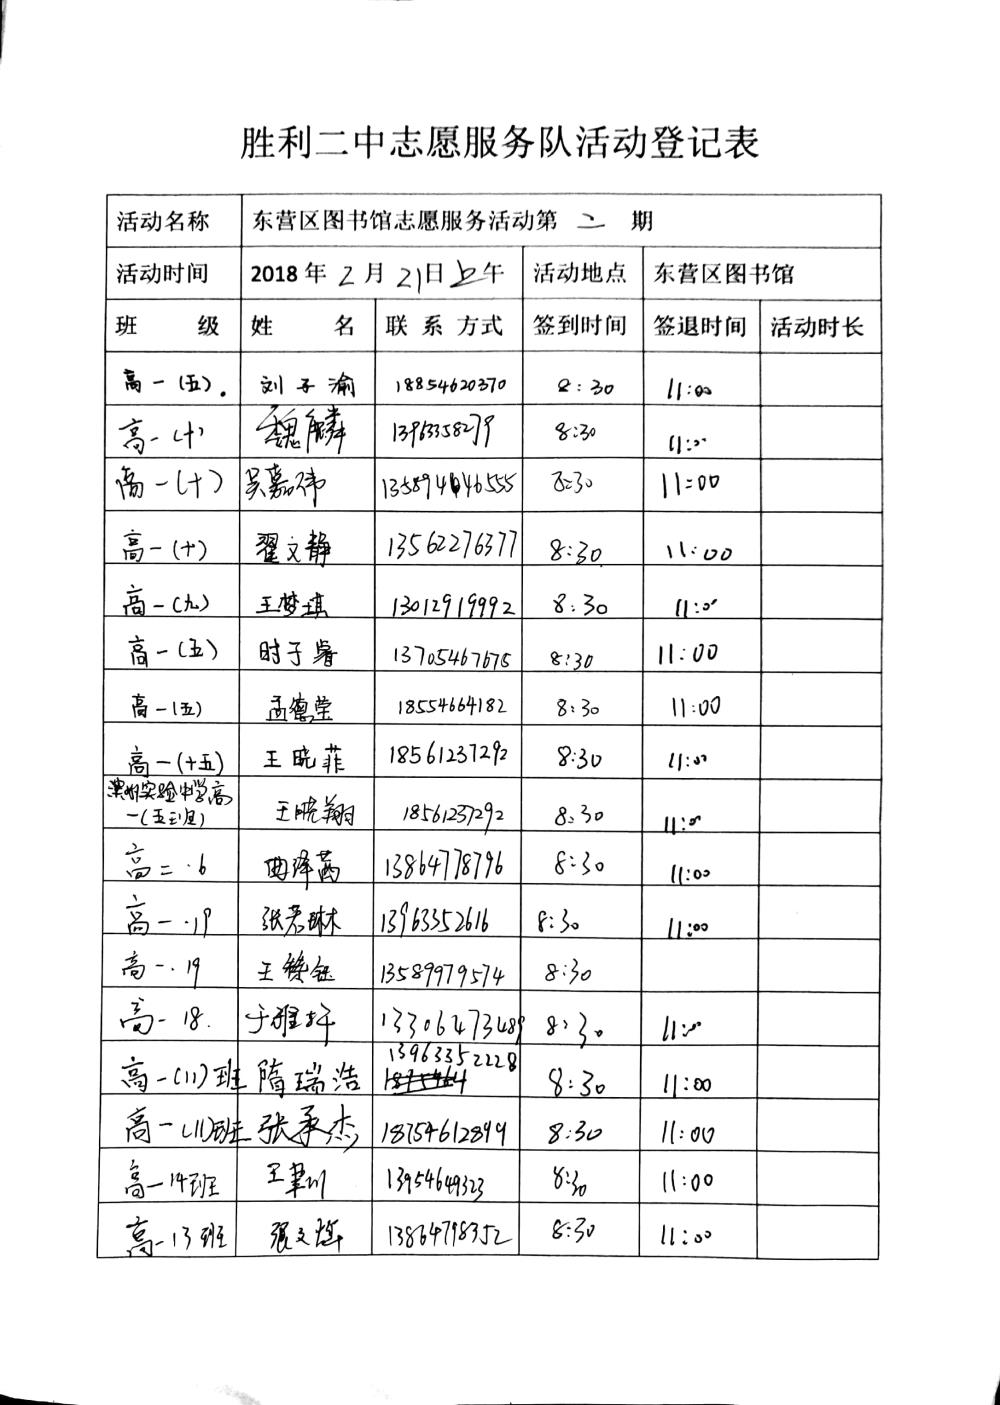 胜利二中志愿服务队活动登记表
活动名称 东营区图书馆志愿服务活动第 二 期
活动时间 2018年2月21日上午 活动地点 东营区图书馆
班 级 姓 名 联系方式 签到时间 签退时间 活动时长
高一(五). 刘子渝 18854620370 8:30 11:00
高一(十) 魏麟 13963358279 8:30 11:00
高一(十) 吴嘉伟 1358946555 8:30 11:00
高一(十) 翟文静 13562276377 8:30 11:00
高一(九) 王梦琪 13012919992 8:30 11:00
高一(五) 时子睿 13705467675 8:30 11:00
高一(五) 孟德莹 18554664182 8:30 11:00
高一(十五) 王晓菲 18561237292 8:30 11:00
实验中学高
一(五班) 王晓翔 18561237292 8:30 11:00
高二·6 曲泽 13864778796 8:30 11:00
高一·19 张君琳 13963352616 8:30 11:00
高一·19 王 钰 13589979574 8:30
高一18. 于雅轩 13306473489 8:30 11:00
13963352228
高一(11)班 隋瑞浩 8:30 11:00
高一(11)班 张承杰 18754612899 8:30 11:00
高一14班 王聿川 13954649323 8:30 11:00
高一13班 張文 13864798352 8:30 11:00